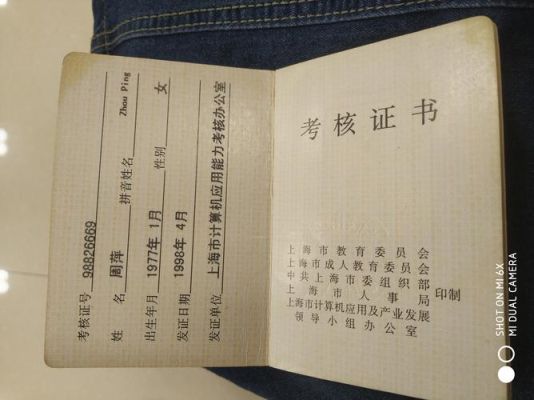 考核证号 98826669
姓 名 周萍 拼音姓名 Zhou Ping
出生年月 1977年 1月 性别 女
发证日期 1998年 4月
发证单位 上海市计算机应用能力考核办公室
考核证书
上海市教育委员会
上海市成人教育委员会
中共上海市委组织部
上海市人事局 印制
上海市计算机应用及产业发展
领导小组办公室
SHOT ON MI 6X
MI DUAL CAMERA